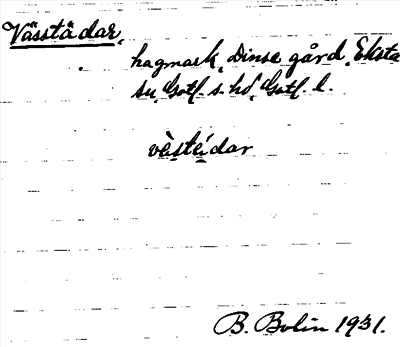 Vässtädar,
hagmark, Dinse gård, Eksta
su, Gotl. s. hd, Gotl. l.
vèstéidar
B. Bolin 1931.